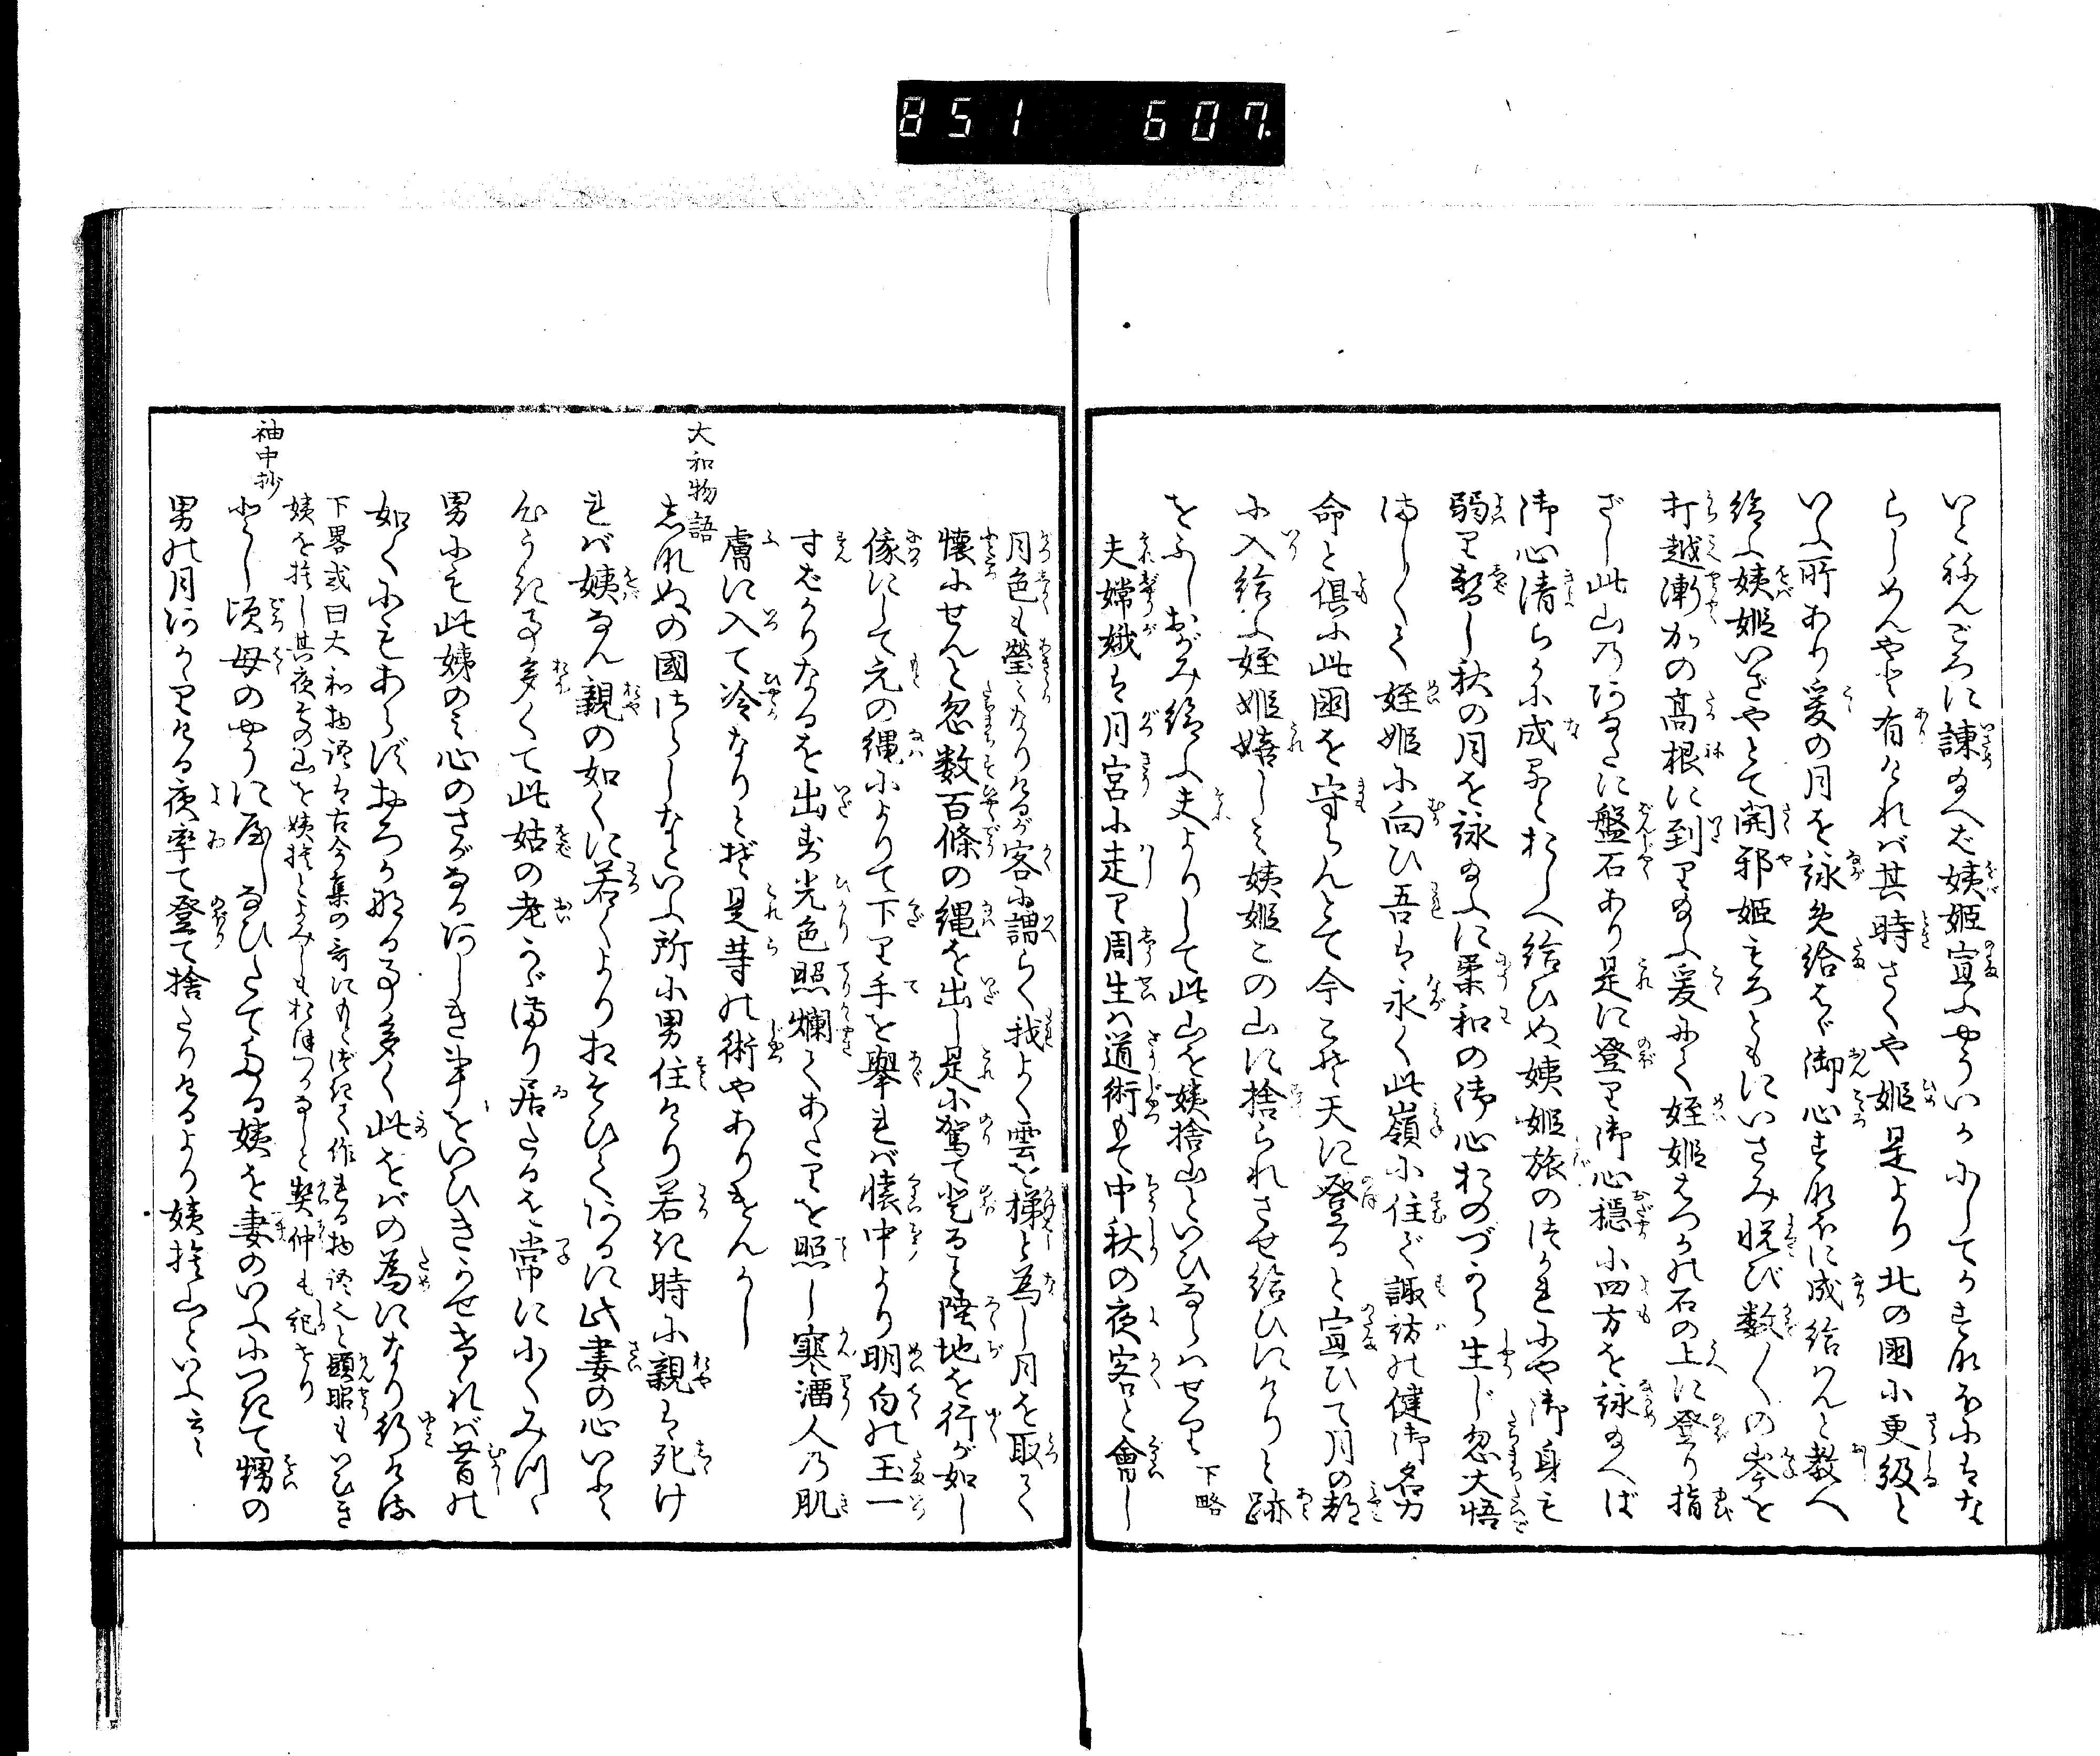 851 607.
いとねんごろに諫給へば姨姫宣ふやういかにしてかすなほにはな
らしめんやと有ければ其時さくや姫是より北の國に更級と
いふ所あり爰の月を詠させ給はゞ御心すなほに成給はんと教へ
給ふ姨姫いざやとて開耶姫もろともにいさみ悦び数〱の岑を
打越漸かの高根に到り給ふ爰にて姪姫はるかの石の上に登り指
ざし此山のあなたに盤石あり是に登り御心穏に四方を詠給へば
御心清らかに成なんとおしへ給ひぬ姨姫旅のつかれにや御身も
弱り暫し秋の月を詠給ふに柔和の御心おのづから生じ忽大悟
ましまして姪姫に向ひ吾は永く此嶺に住で諏訪の健御名方
命と倶に此國を守らんとて今こそ天に登ると宣ひて月の都
に入給ふ姪姫嬉しくも姨姫この山に捨られさせ給ひにけりと跡
をふしおがみ給ふ夫よりして此山を姨捨山といひならはせり 下略
夫嫦娥は月宮に走り周生は道術もて中秋の夜客と會し
月色も瑩々なりけるが客に謂らく我よく雲を梯と為し月を取て
懐にせんと忽数百條の縄を出し是に駕て登ること陸地を行が如し
俄にして元の縄によりて下り手を擧れば懐中より明白の玉一
寸ばかりなるを出す光色照爛てあたりを照し寒凛人の肌
膚に入て冷なりとぞ是等の術やありけんかし
大和物語
志なの國さらしなといふ所に男住けり若き時に親は死け
れば姨なん親の如くに若くよりあひそひてあるに此妻の心いと
心うき事多くて此姑の老かゞまり居たるを常ににくみつゝ
男にも此姨のみ心のさがなくあしき事をいひきかせければ昔の
如くにもあらずおろかなる事多く此をばの為になり行けり
下畧或曰大和物語は古今集の哥にもとづきて作れる物語也と顕昭もいひき
姨を捨し其夜その山を姨捨とよみしもおぼつかなしと契仲も記せり
袖中抄
昔し頃母のやうに居しなひたてたる姨を妻のいふにつきて甥の
男の月あかりける夜率て登て捨たりけるより姨捨山といふ云々